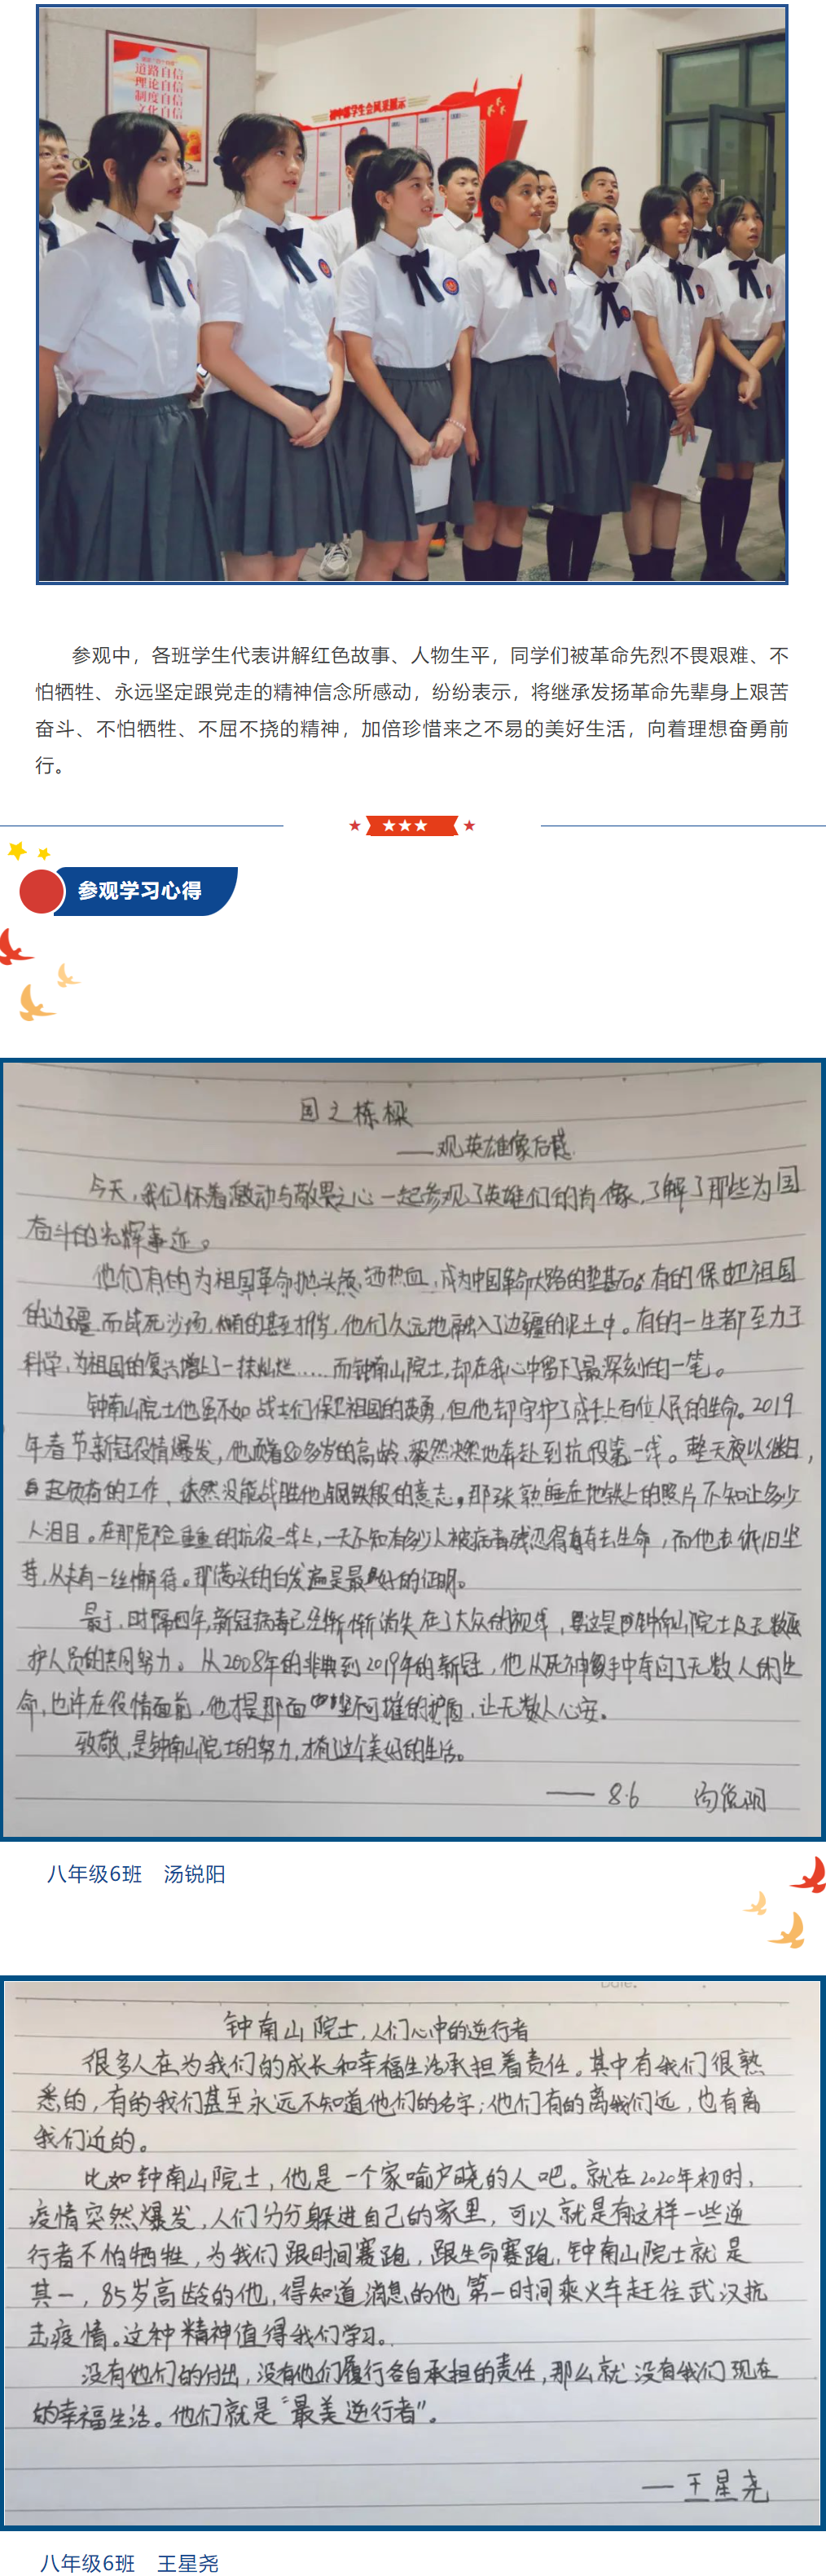 道路自信
理论自信
制度自信
文化自信
初中部学生会风采展示
参观中，各班学生代表讲解红色故事、人物生平，同学们被革命先烈不畏艰难、不
怕牺牲、永远坚定跟党走的精神信念所感动，纷纷表示，将继承发扬革命先辈身上艰苦
奋斗、不怕牺牲、不屈不挠的精神，加倍珍惜来之不易的美好生活，向着理想奋勇前
行。
参观学习心得
国之栋樑
——观英雄像后感
今天，我们怀着激动与敬畏之心一起参观了英雄们的肖像，了解了那些为国
奋斗的光辉事迹。
他们有的为祖国革命抛头颅，洒热血，成为中国革命大路的垫基石；有的保卫祖国
的边疆，而战死沙场，他们久远地融入了边疆的泥土中。有的一生都至力于
科学，为祖国的复兴增上了一抹灿烂……而钟南山院士，却在我心中留下了最深刻的一笔。
钟南山院士他虽不如战士们保卫祖国的英勇，但他却守护了成千上百位人民的生命。2019
年春节新冠役情爆发，他顶着80多岁的高龄，毅然决然地奔赴到抗役第一线。整天夜以继日，
的工作，依然没能战胜他钢铁般的意志，那张熟睡在地铁上的照片不知让多少
人泪目。在那危险重重的抗役一线上，一天不知有多少人被病毒残忍得夺去生命，而他去依旧坚
守，从未有一丝懈待。那满头的白发便是最好的证明。
最于，时隔四年，新冠病毒已经渐渐消失在了大众的视线，这是钟南山院士及无数医
护人员的共同努力。从2008年的非典到2019年的新冠，他从死神手中夺回了无数人的生
命，也许在役情面前，他才是那面坚不可摧的护盾，让无数人心安。
致敬，是钟南山院士的努力，才有了这个美好的生活。
—— 8.6
八年级6班 汤锐阳
Date.
钟南山院士，人们心中的逆行者
很多人在为我们的成长和幸福生活承担着责任。其中有我们很熟
悉的，有的我们甚至永远不知道他们的名字；他们有的离我们远，也有离
我们近的。
比如钟南山院士，他是一个家喻户晓的人吧。就在2020年初时，
疫情突然爆发，人们分分躲进自己的家里，可以就是有这样一些逆
行者不怕牺牲，为我们跟时间赛跑，跟生命赛跑，钟南山院士就是
其一，85岁高龄的他，得知道消息的他第一时间乘火车赶往武汉抗
击疫情。这种精神值得我们学习。
没有他们的付出，没有他们履行各自承担的责任，那么就没有我们现在
的幸福生活。他们就是“最美逆行者”。
——王星尧
八年级6班 王星尧